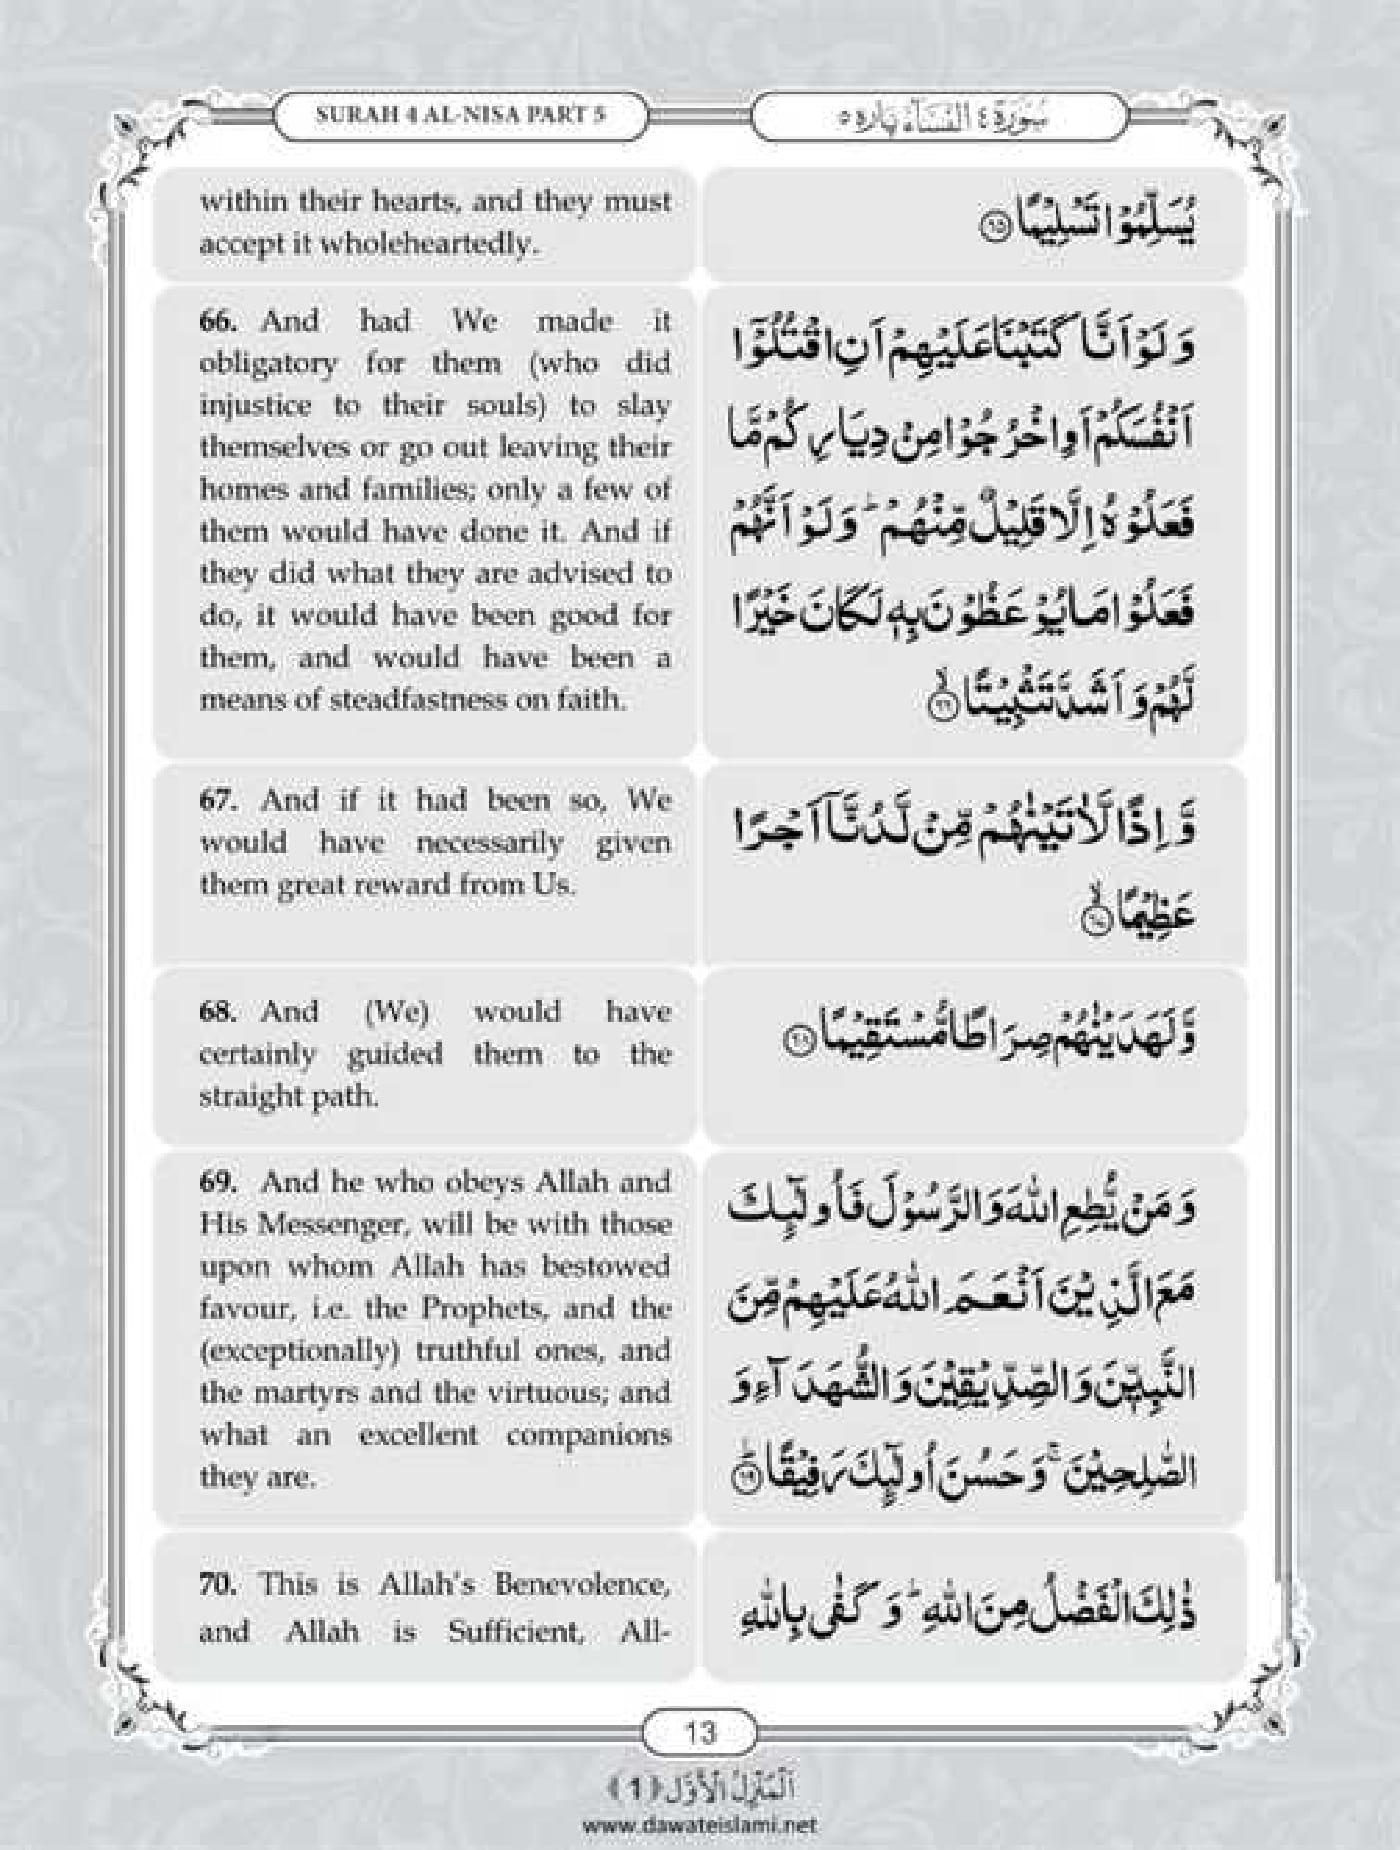 SURAH 4 AL-NISA PART 5
سُوْرَةٌ ٤ اَلنِّسَآءُ پاره ٥
within their hearts, and they must
accept it wholeheartedly.
يُسَلِّمُوْا تَسْلِيْمًا ﴿٦٥﴾
66. And had We made it
obligatory for them (who did
injustice to their souls) to slay
themselves or go out leaving their
homes and families; only a few of
them would have done it. And if
they did what they are advised to
do, it would have been good for
them, and would have been a
means of steadfastness on faith.
وَ لَوْ اَنَّا كَتَبْنَا عَلَيْهِمْ اَنِ اقْتُلُوْۤا
اَنْفُسَكُمْ اَوِ اخْرُجُوْا مِنْ دِيَارِكُمْ مَّا
فَعَلُوْهُ اِلَّا قَلِيْلٌ مِّنْهُمْ ؕ وَ لَوْ اَنَّهُمْ
فَعَلُوْا مَا يُوْعَظُوْنَ بِهٖ لَكَانَ خَيْرًا
لَّهُمْ وَ اَشَدَّ تَثْبِيْتًا ﴿٦٦﴾ ۙ
67. And if it had been so, We
would have necessarily given
them great reward from Us.
وَّ اِذًا لَّاٰتَيْنٰهُمْ مِّنْ لَّدُنَّاۤ اَجْرًا
عَظِيْمًا ﴿٦٧﴾ ۙ
68. And (We) would have
certainly guided them to the
straight path.
وَّ لَهَدَيْنٰهُمْ صِرَاطًا مُّسْتَقِيْمًا ﴿٦٨﴾
69. And he who obeys Allah and
His Messenger, will be with those
upon whom Allah has bestowed
favour, i.e. the Prophets, and the
(exceptionally) truthful ones, and
the martyrs and the virtuous; and
what an excellent companions
they are.
وَ مَنْ يُّطِعِ اللّٰهَ وَ الرَّسُوْلَ فَاُولٰٓئِكَ
مَعَ الَّذِيْنَ اَنْعَمَ اللّٰهُ عَلَيْهِمْ مِّنَ
النَّبِيّٖنَ وَ الصِّدِّيْقِيْنَ وَ الشُّهَدَآءِ وَ
الصّٰلِحِيْنَ ۚ وَ حَسُنَ اُولٰٓئِكَ رَفِيْقًا ﴿٦٩﴾ ؕ
70. This is Allah's Benevolence,
and Allah is Sufficient, All-
ذٰلِكَ الْفَضْلُ مِنَ اللّٰهِ ؕ وَ كَفٰى بِاللّٰهِ
13
اَلْمَنْزِلُ الْاَوَّل ﴿1﴾
www.dawateislami.net